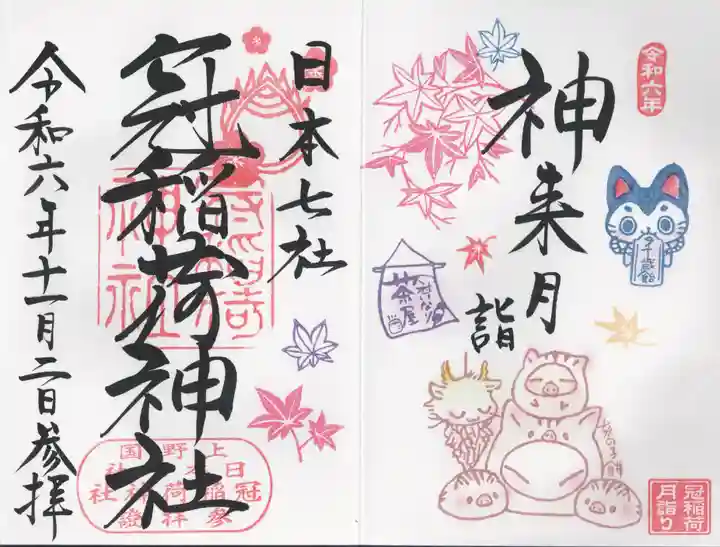 令和六年
神来月
詣
千歳飴
茶屋
亥の子餅
冠稲荷
月詣り
日本七社
冠稲荷神社
令和六年十一月二日参拝
上野国
日本
冠稲荷
神社
参拝
社證